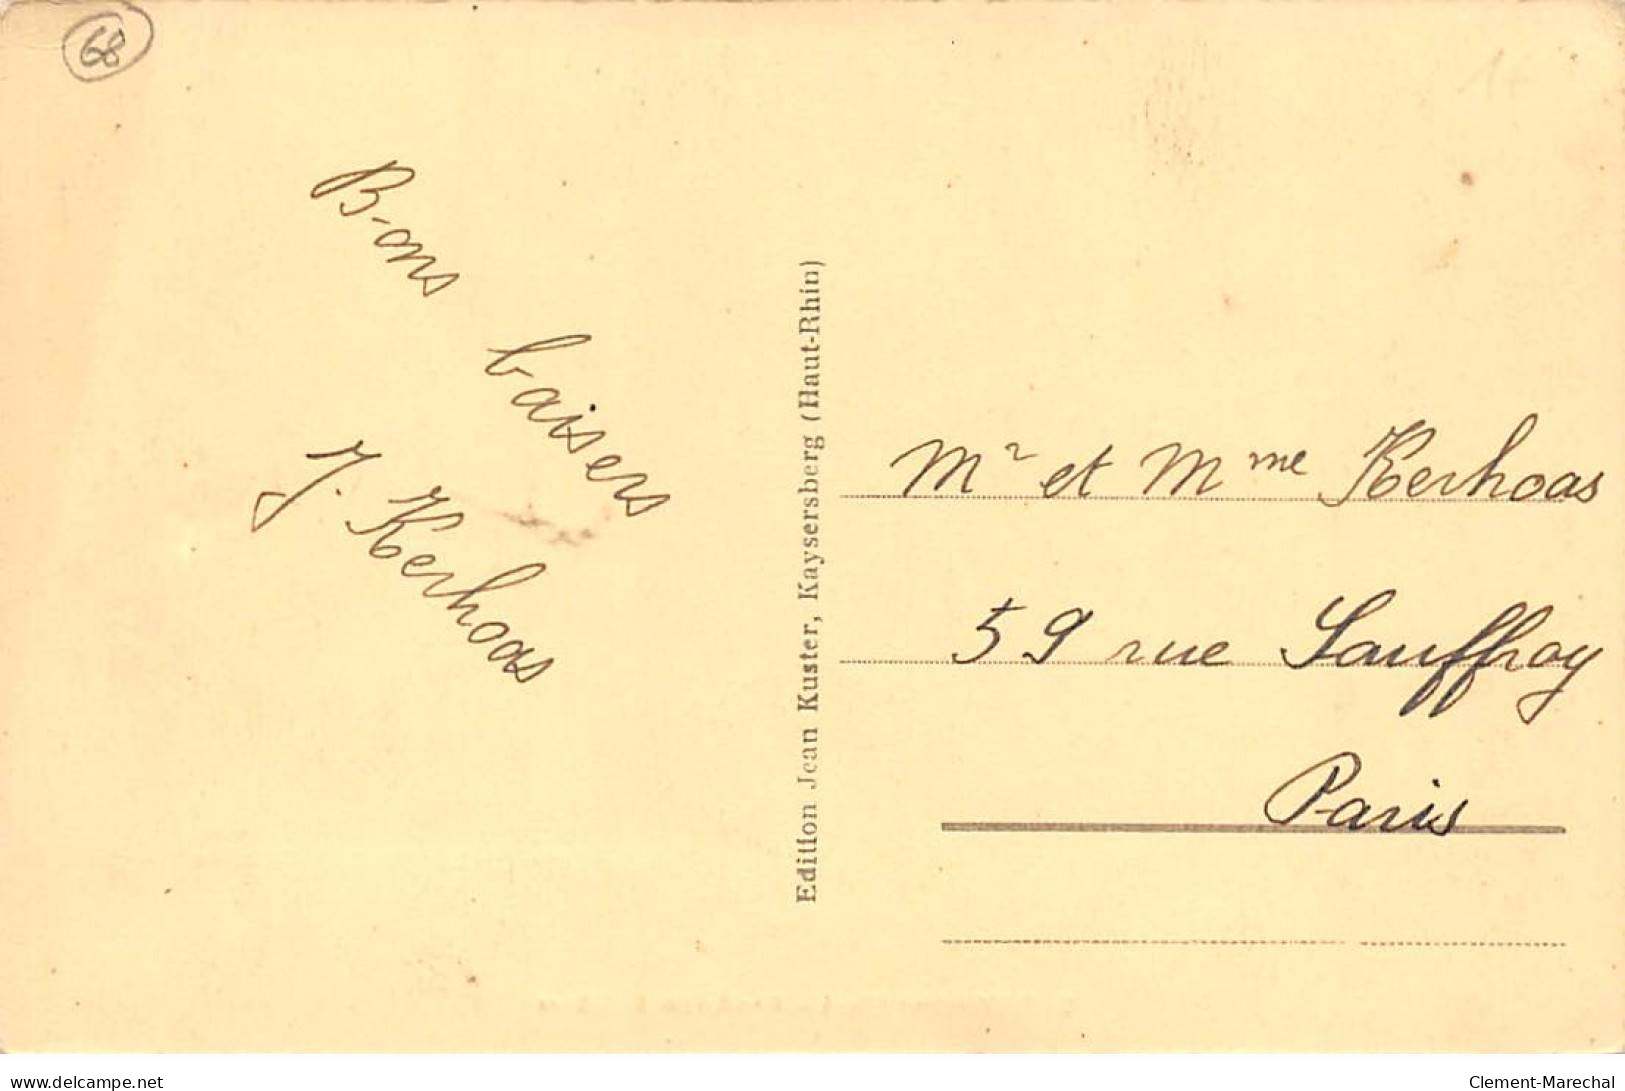 68
Bons baisers
J. Kerhoas
Edition Jean Kuster, Kaysersberg (Haut-Rhin)
Mr et Mme Kerhoas
59 rue Sauffroy
Paris
www.delcampe.net
Clement-Marechal